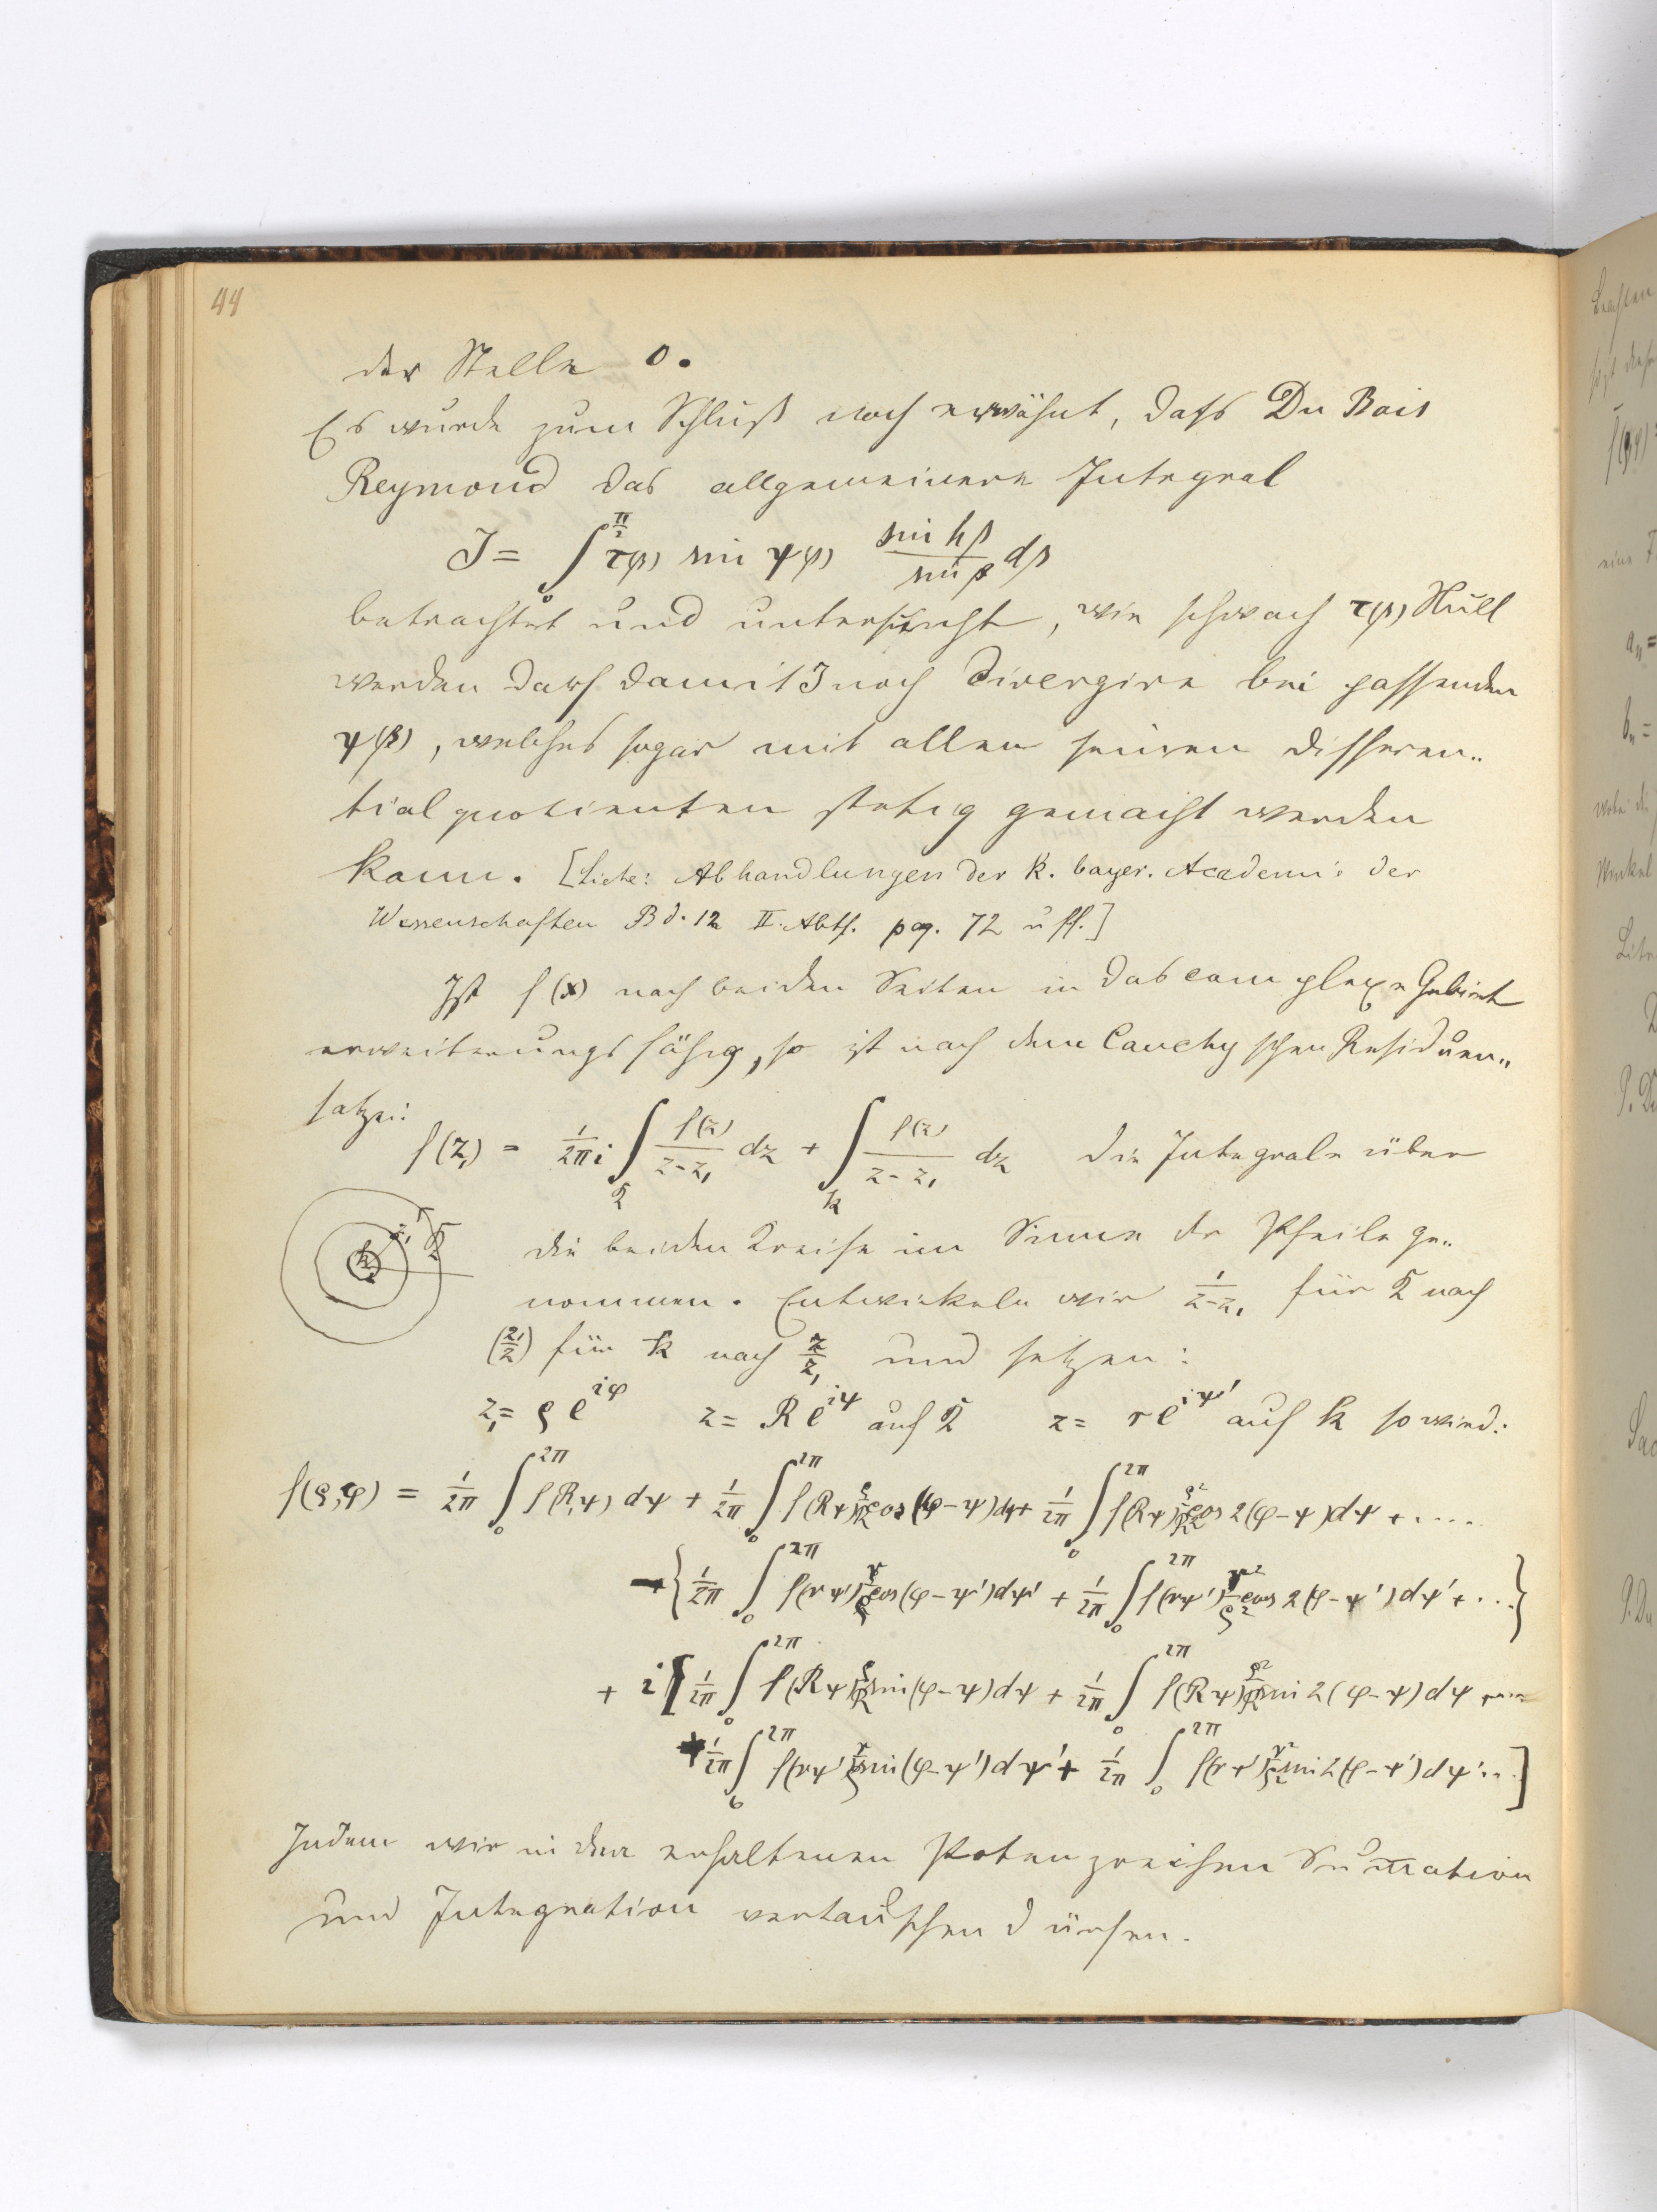 44
der Stelle 0.
Es wurde zum Schluß noch erwähnt, dafs Du Bois
Reymond das allgemeinere Integral
J = ∫₀^{π/2} τ(β) sin ψ(β) (sin hβ / sin β) dβ
betrachtet und untersucht, wie schwach τ(β) Null
werden darf damit J noch divergire bei passenden
ψ(β), welches sogar mit allen seinen Differen„
tialquotienten stetig gemacht werden
kann. [Siehe: Abhandlungen der K. bayer. Academie der
Wissenschaften Bd. 12 II. Abth. pag. 72 u ff.]
Ist f(x) nach beiden Seiten in das complexe Gebiet
erweiterungsfähig, so ist nach dem Cauchyschen Residuen„
satze:
f(z₁) = 1/2πi ∫_K f(z)/(z-z₁) dz + ∫_k f(z)/(z-z₁) dz die Integrale über
k z₁ K
die beiden Kreise im Sinne der Pfeile ge„
nommen. Entwickeln wir 1/(z-z₁) für K nach
(z₁/z) für k nach z/z₁ und setzen:
z₁ = ϱ e^{iφ} z = R e^{iψ} auf K z = r e^{iψ'} auf k so wird:
f(ϱ,φ) = 1/2π ∫₀^{2π} f(R,ψ) dψ + 1/2π ∫₀^{2π} f(Rψ) ϱ/R cos(φ-ψ)dψ + 1/2π ∫₀^{2π} f(Rψ) ϱ²/R² cos 2(φ-ψ)dψ + ....
+ {1/2π ∫₀^{2π} f(rψ') r/ϱ cos(φ-ψ')dψ' + 1/2π ∫₀^{2π} f(rψ') r²/ϱ² cos 2(φ-ψ')dψ' + ...}
+ i [1/2π ∫₀^{2π} f(Rψ) ϱ/R sin(φ-ψ)dψ + 1/2π ∫₀^{2π} f(Rψ) ϱ²/R² sin 2(φ-ψ)dψ + ...
+ 1/2π ∫₀^{2π} f(rψ') r/ϱ sin(φ-ψ')dψ' + 1/2π ∫₀^{2π} f(rψ') r²/ϱ² sin 2(φ-ψ')dψ' ...]
Indem wir in den erhaltenen Potenzreihen Sum̅ation
und Integration vertauschen dürfen.